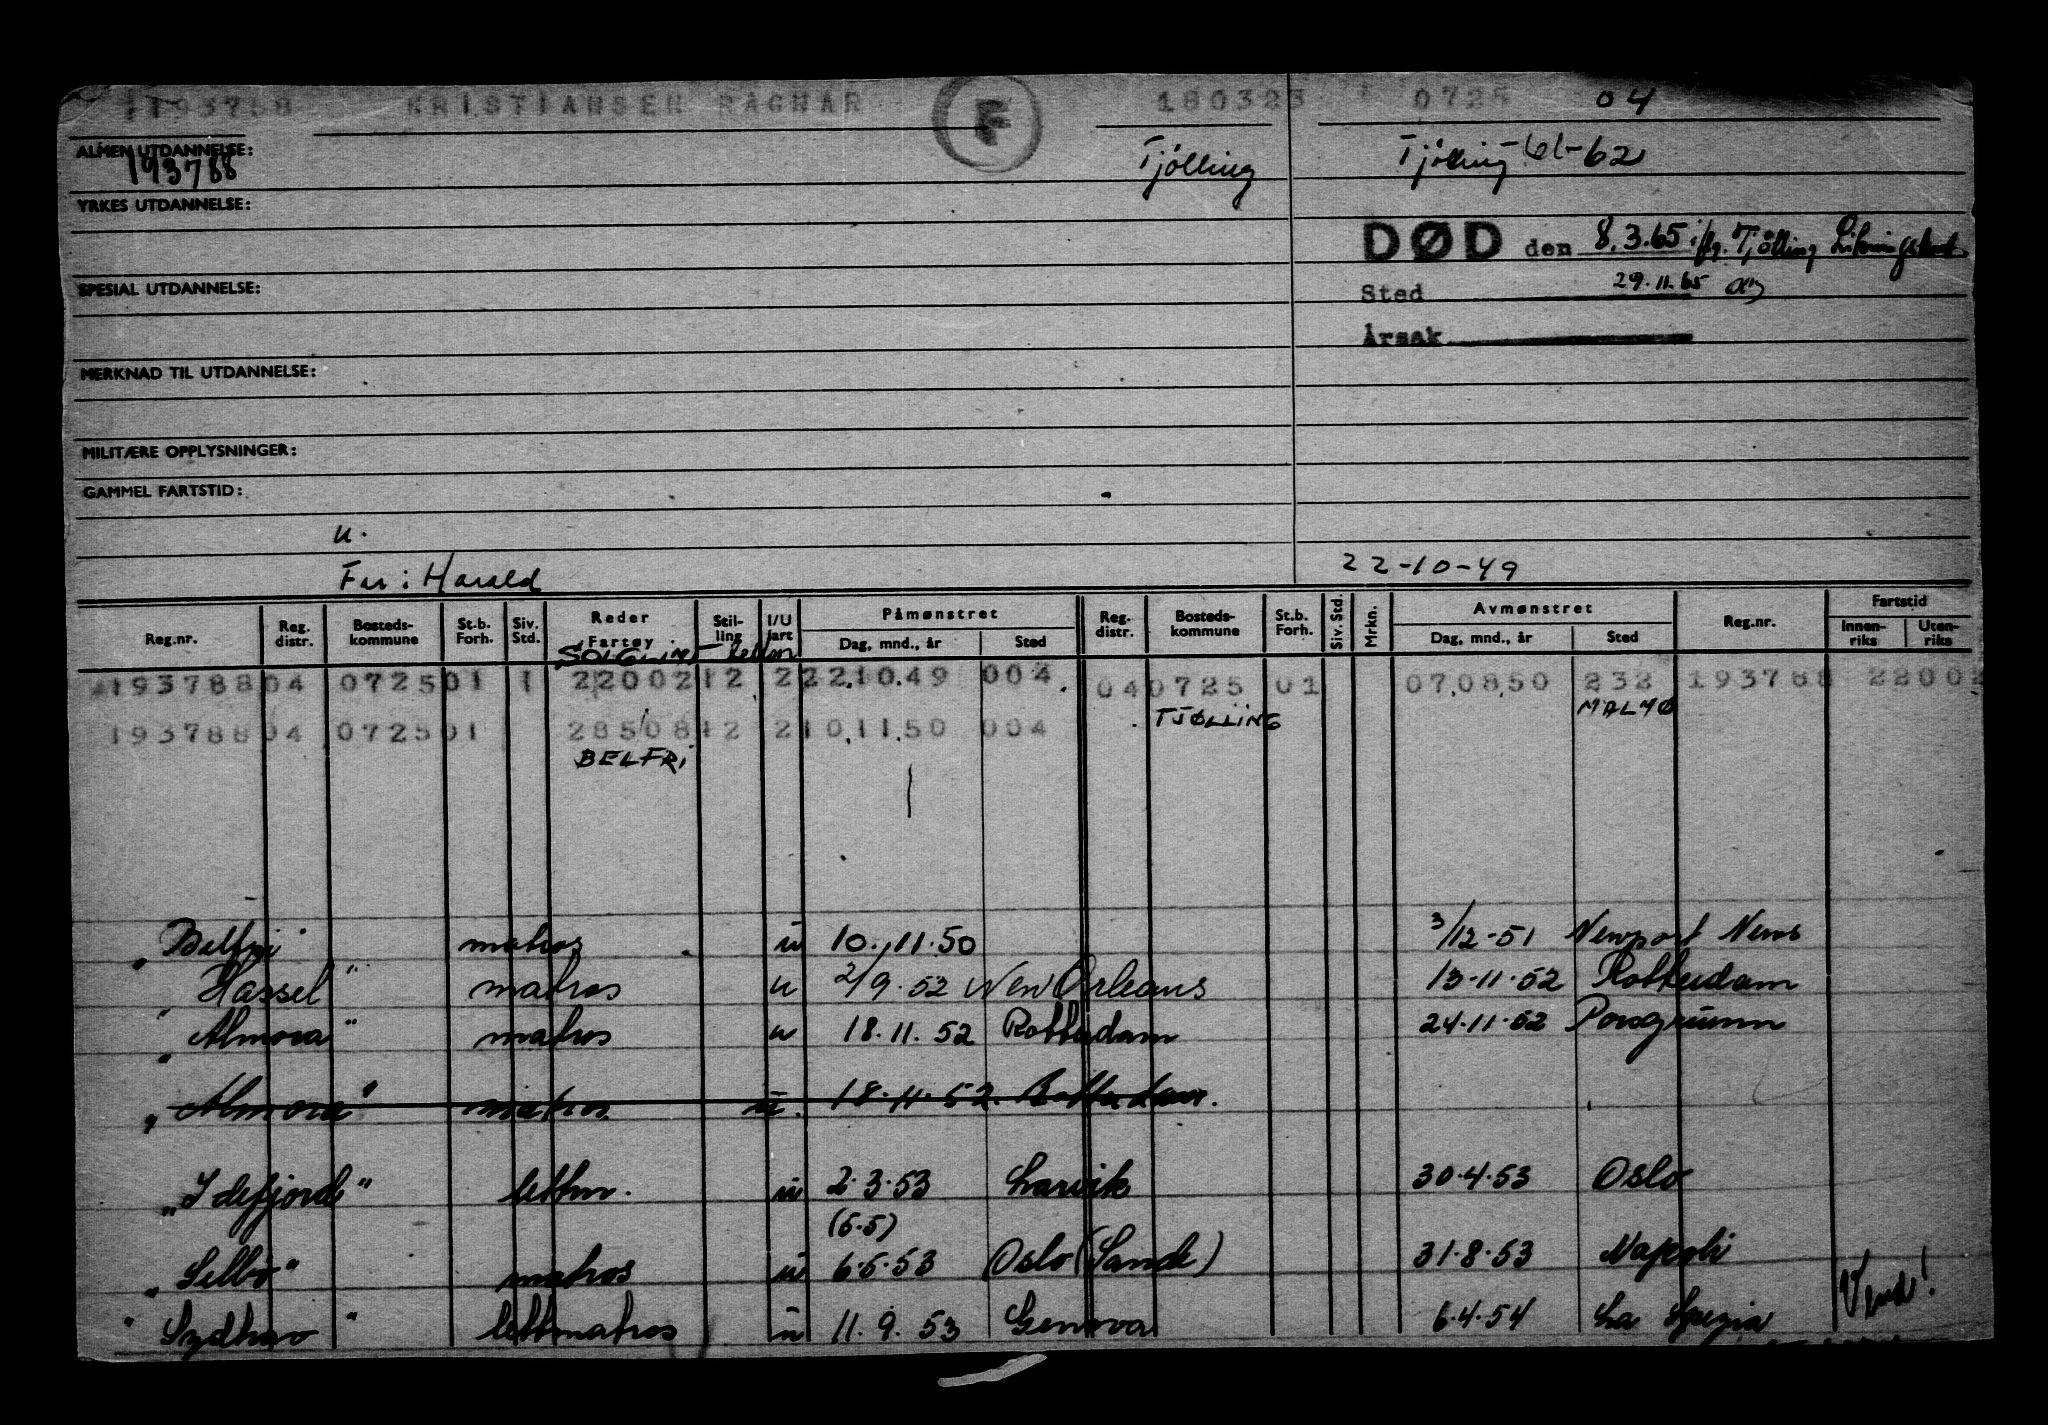 193788 KRISTIANSEN RAGNAR F 180323 0725 04
ALMEN UTDANNELSE:
193788 Tjölling Tjölling 61-62
YRKES UTDANNELSE:
DØD den 8.3.65 Tjölling
SPESIAL UTDANNELSE:
Sted 29.11.65
Årsak
MERKNAD TIL UTDANNELSE:
MILITÆRE OPPLYSNINGER:
GAMMEL FARTSTID:
u.
Far: Harald 22-10-49
Reg.nr. Reg. distr. Bosteds-kommune St.b. Forh. Siv. Std. Reder Fartøy Stil-ling I/U fart Påmønstret Dag, mnd., år Sted Reg. distr. Bosteds-kommune St.b. Forh. Siv. Std. Mrkn. Avmønstret Dag, mnd., år Sted Reg.nr. Fartstid Innen-riks Uten-riks
193788 04 0725 01 1 22002 12 2 22.10.49 004 04 0725 01 07.08.50 232 193788 22002
TJØLLING MALMØ
193788 04 0725 01 28508 12 2 10.11.50 004
BELFRI
"Belfri" matros u 10.11.50 3/12-51 Newport News
"Hassel" matros u 2/9.52 New Orleans 13-11-52 Rotterdam
"Almora" matros u 18.11.52 Rotterdam 24-11-52 Porsgrunn
"Almora" matros u. 18.11.52. Rotterdam.
"Idefjord" lettm. u 2.3.53 Larvik 30.4.53 Oslo
(5.5)
"Selbo" matros u 6.5.53 Oslo (Sande) 31.8.53 Napoli
"Sydhav" lettmatros u 11.9.53 Genova 6.4.54 La Spezia Vend!